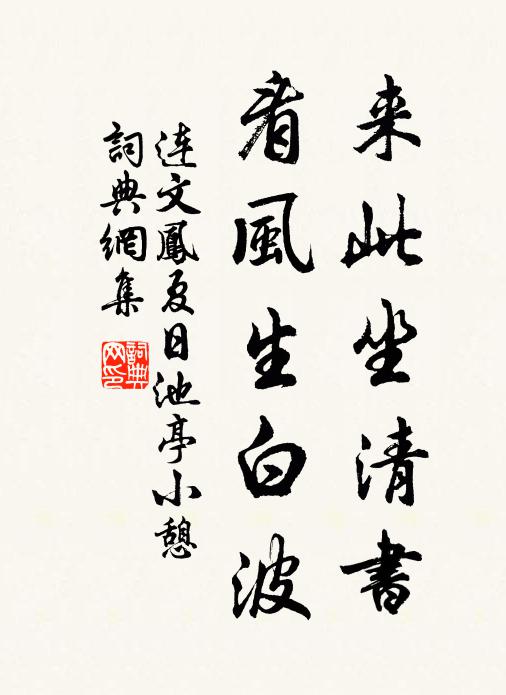 来此坐清書
看風生白波
連文鳳夏日池亭小憩
詞典網集
詞典
网印